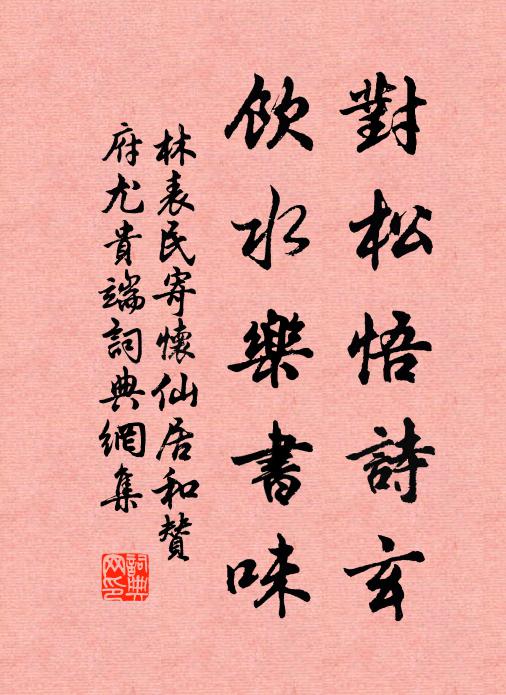 對松悟詩玄
飲水樂書味
林表民寄懷仙居和贊
府尤貴端詞典網集
詞典網印